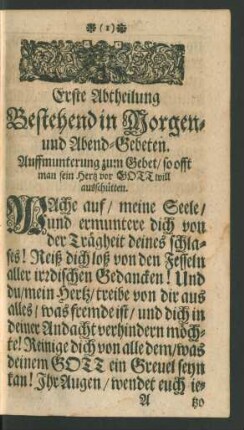 (1)
Erste Abtheilung
Bestehend in Morgen-
und Abend-Gebeten.
Auffmunterung zum Gebet/ so offt
man sein Hertz vor GOTT will
ausschütten.
WAche auf/ meine Seele/
und ermuntere dich von
der Trägheit deines schla-
fes! Reiß dich loß von den Fesseln
aller irrdischen Gedancken! Und
du/mein Hertz/ treibe von dir aus
alles/ was fremde ist/ und dich in
deiner Andacht verhindern möch-
te! Reinige dich von alle dem/was
deinem GOTT ein Greuel seyn
kan! Ihr Augen/ wendet euch ie-
A tzo